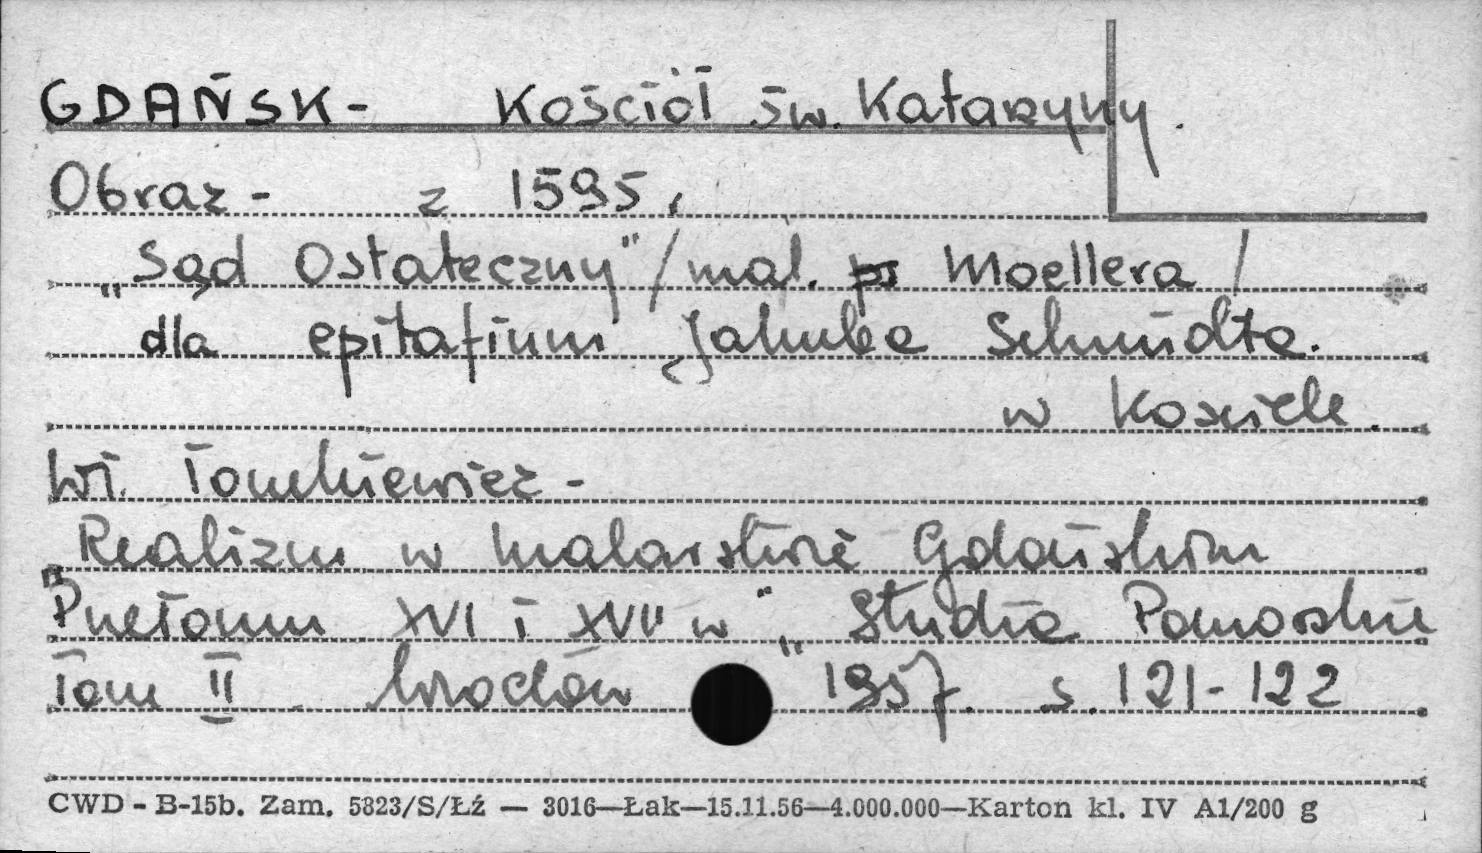 GDAŃSK- Kościół św. Katarzyny.
Obraz - z 1595.
„Sąd Ostateczny" /mal. Moellera/
dla epitafium Jakuba Schmidta.
w Kościele.
Wł. Tomkiewicz -
"Realizm w malarstwie Gdańskim
Przełomu XVI i XVII w" „Studia Pomorskie
Tom II Wrocław 1957. s. 121-122
CWD - B-15b. Zam. 5823/S/Łź — 3016—Łak—15.11.56—4.000.000—Karton kl. IV A1/200 g